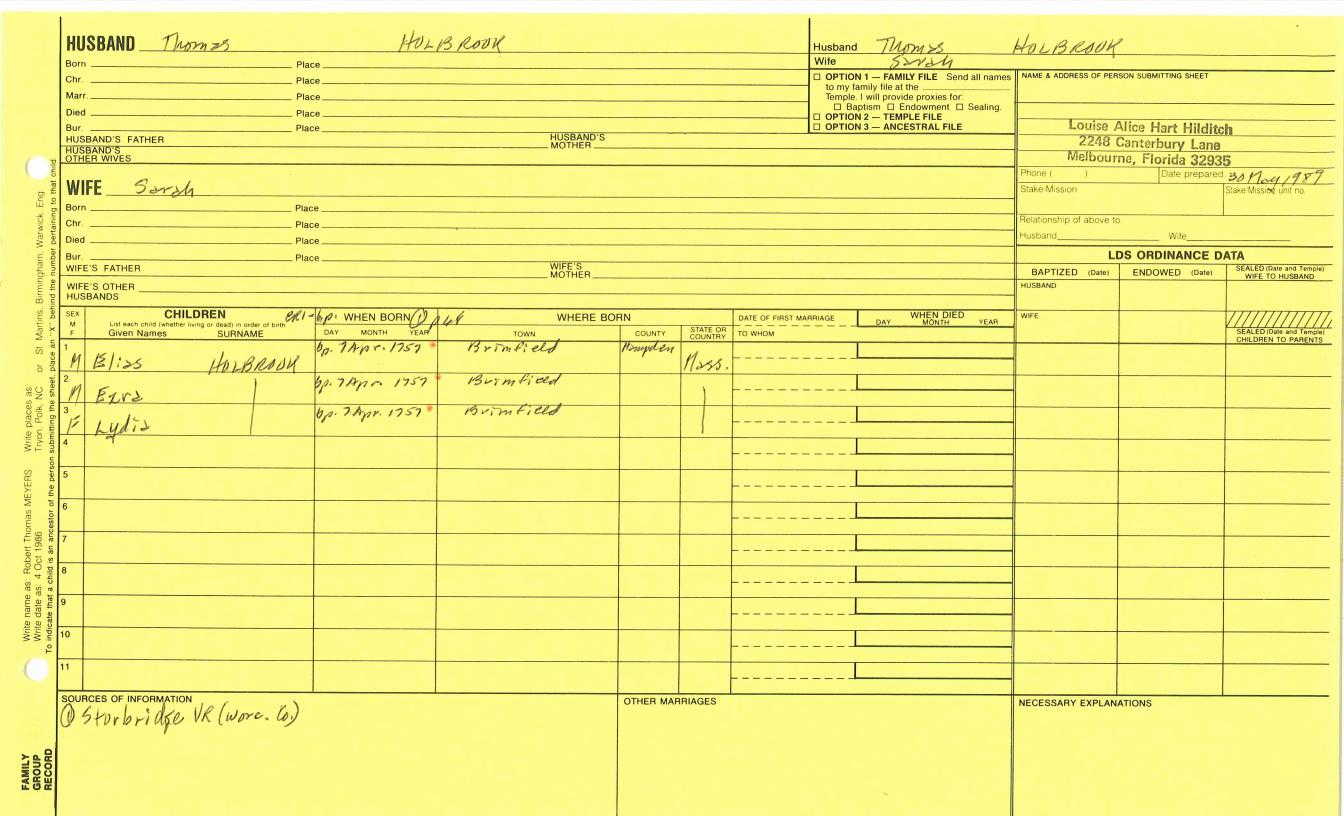 HUSBAND Thomas HOLBROOK
Born Place
Chr. Place
Marr. Place
Died Place
Bur. Place
HUSBAND'S FATHER HUSBAND'S MOTHER
HUSBAND'S OTHER WIVES
WIFE Sarah
Born Place
Chr. Place
Died Place
Bur. Place
WIFE'S FATHER WIFE'S MOTHER
WIFE'S OTHER HUSBANDS
Husband Thomas HOLBROOK
Wife Sarah
☐ OPTION 1 — FAMILY FILE Send all names
to my family file at the
Temple. I will provide proxies for:
☐ Baptism ☐ Endowment ☐ Sealing.
☐ OPTION 2 — TEMPLE FILE
☐ OPTION 3 — ANCESTRAL FILE
NAME & ADDRESS OF PERSON SUBMITTING SHEET
Louise Alice Hart Hilditch
2248 Canterbury Lane
Melbourne, Florida 32935
Phone ( ) Date prepared 30 May 1989
Stake/Mission Stake/Mission unit no.
Relationship of above to:
Husband Wife
LDS ORDINANCE DATA
BAPTIZED (Date) ENDOWED (Date) SEALED (Date and Temple) WIFE TO HUSBAND
HUSBAND
WIFE
SEALED (Date and Temple) CHILDREN TO PARENTS
SEX M F
CHILDREN
List each child (whether living or dead) in order of birth
Given Names SURNAME
CR1- bp. WHEN BORN ① p 68
DAY MONTH YEAR
WHERE BORN
TOWN COUNTY STATE OR COUNTRY
DATE OF FIRST MARRIAGE
TO WHOM
WHEN DIED
DAY MONTH YEAR
1 M Elias HOLBROOK bp. 7 Apr. 1757 * Brimfield Hampden Mass.
2 M Ezra | bp. 7 Apr 1757 * Brimfield |
3 F Lydia bp. 7 Apr. 1757 * Brimfield
4
5
6
7
8
9
10
11
SOURCES OF INFORMATION
① Sturbridge VR (Worc. Co.)
OTHER MARRIAGES
NECESSARY EXPLANATIONS
Write name as: Robert Thomas MEYERS Write places as:
Write date as: 4 Oct 1986 Tryon, Polk, NC or St. Martins, Birmingham, Warwick, Eng
To indicate that a child is an ancestor of the person submitting the sheet, place an "X" behind the number pertaining to that child
FAMILY GROUP RECORD